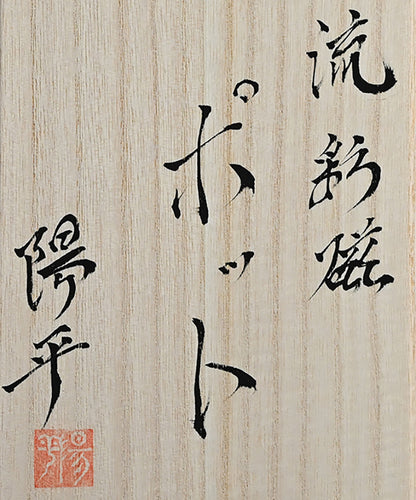 流彩磁
ポット
陽平
陽平